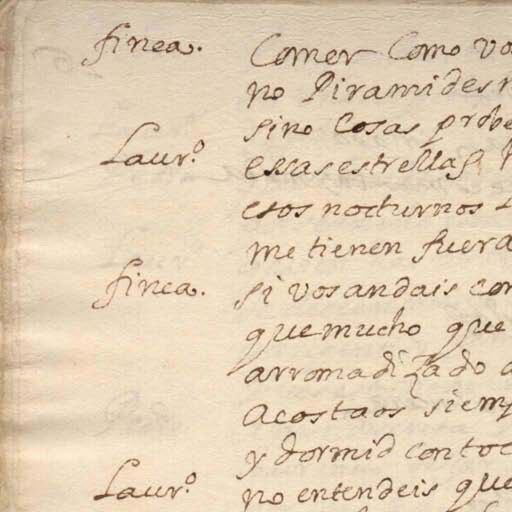 finea. Comer Como vo
no Piramides n
sino Cosas probe
Laur.º essas estrellas h
esos nocturnos
me tienen fuera
finea. si vos andais con
que mucho que
arromadizado
Acostaos siemp
y dormid con toc
Laur.º no entendeis que